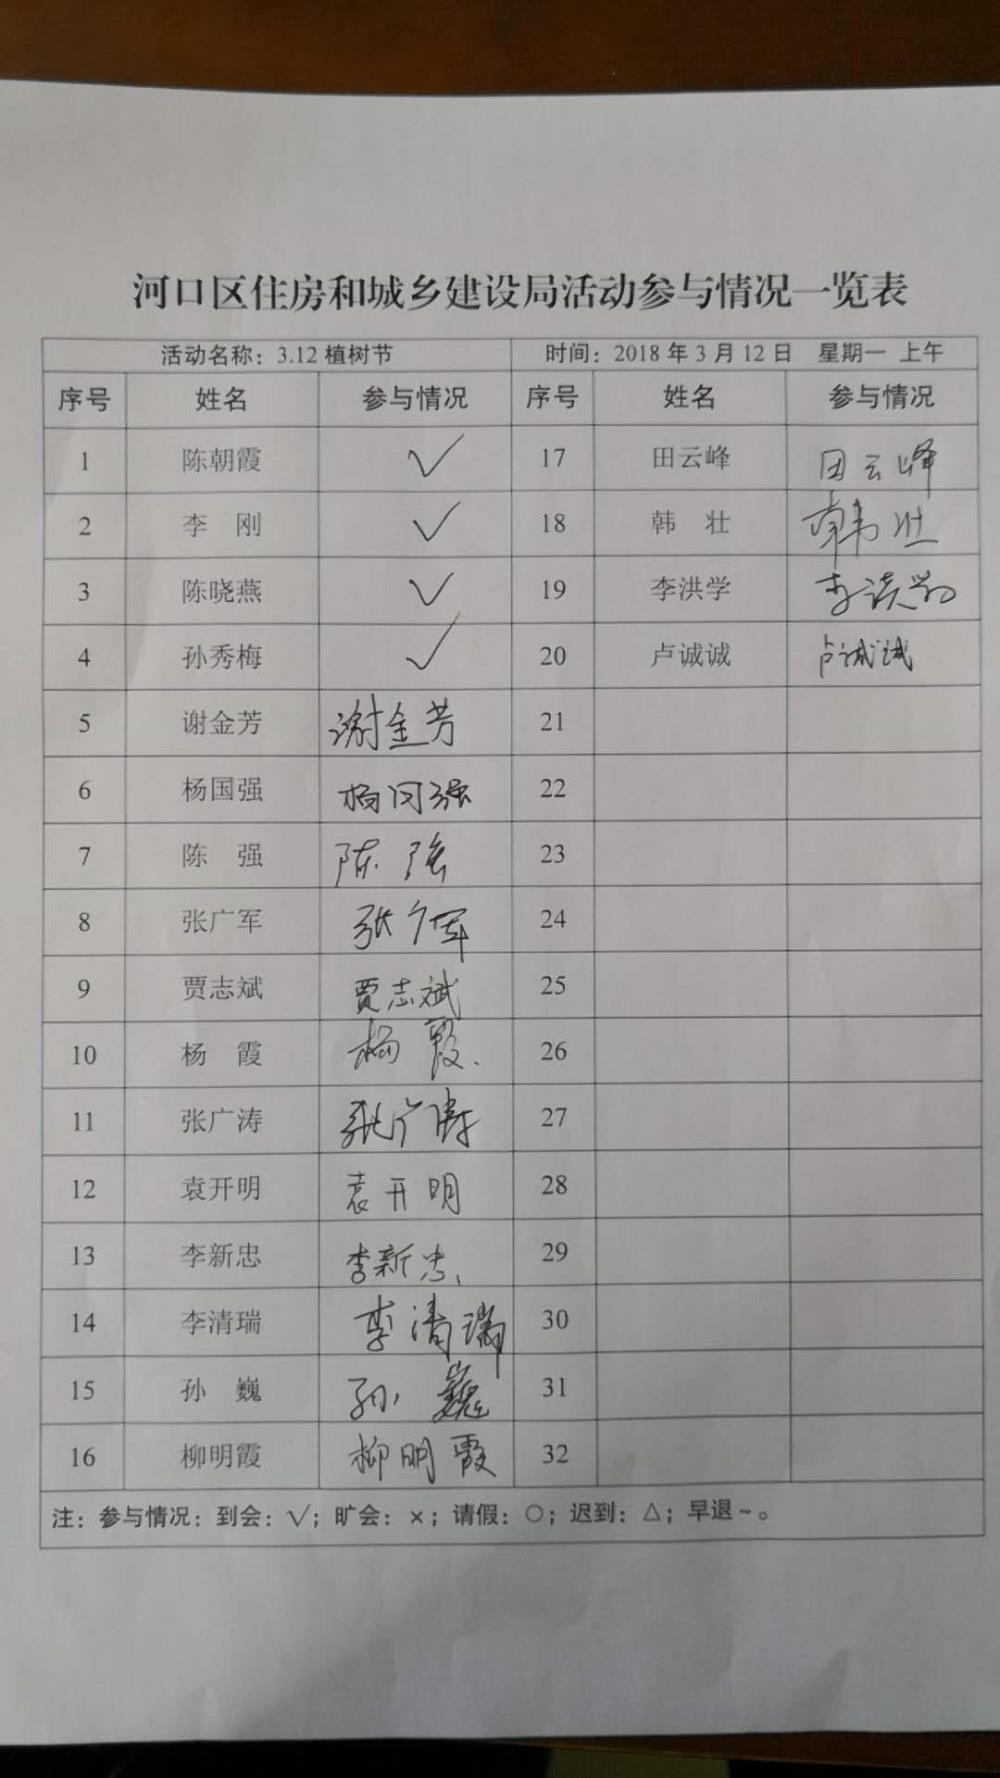 河口区住房和城乡建设局活动参与情况一览表
活动名称：3.12 植树节 时间：2018 年 3 月 12 日 星期一 上午
序号 姓名 参与情况 序号 姓名 参与情况
1 陈朝霞 √ 17 田云峰 田云峰
2 李 刚 √ 18 韩 壮 韩壮
3 陈晓燕 √ 19 李洪学 李洪学
4 孙秀梅 √ 20 卢诚诚 卢诚诚
5 谢金芳 谢金芳 21
6 杨国强 杨国强 22
7 陈 强 陈强 23
8 张广军 张广军 24
9 贾志斌 贾志斌 25
10 杨 霞 杨霞. 26
11 张广涛 张广涛 27
12 袁开明 袁开明 28
13 李新忠 李新忠 29
14 李清瑞 李清瑞 30
15 孙 巍 孙巍 31
16 柳明霞 柳明霞 32
注：参与情况：到会：√；旷会：×；请假：○；迟到：△；早退~。